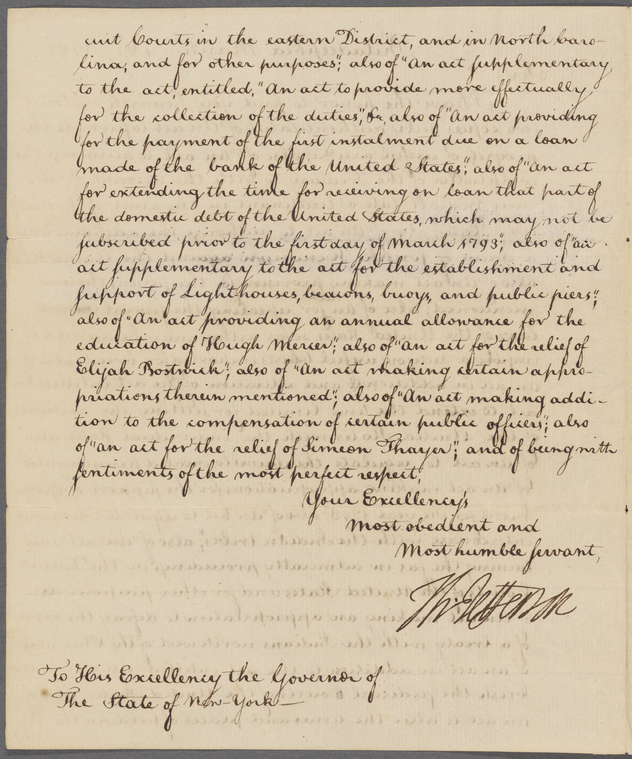 cuit Courts in the eastern District, and in North Caro-
lina, and for other purposes"; also of "An act supplementary
to the act, entitled, "An act to provide more effectually
for the collection of the duties", &c, also of "An act providing
for the payment of the first instalment due on a loan
made of the bank of the United States"; also of "An act
for extending the time for receiving on loan that part of
the domestic debt of the United States, which may not be
subscribed prior to the first day of March 1793"; also of "an
act supplementary to the act for the establishment and
support of Lighthouses, beacons, buoys, and public piers";
also of "An act providing an annual allowance for the
education of Hugh Mercer"; also of "An act for the relief of
Elijah Bostwick"; also of "An act making certain appro-
priations therein mentioned"; also of "An act making addi-
tion to the compensation of certain public officers"; also
of "an act for the relief of Simeon Thayer"; and of being with
sentiments of the most perfect respect,
Your Excellency's
Most obedient and
Most humble servant,
Th: Jefferson
To His Excellency the Governor of
The State of New-York—